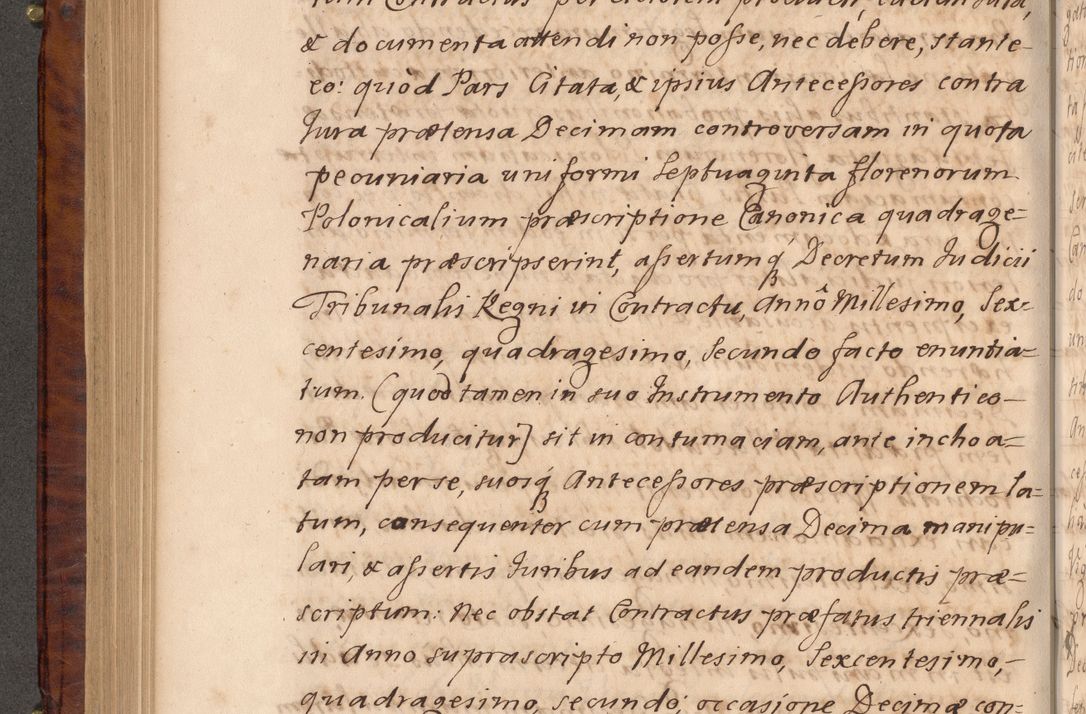 & documenta attendi non posse, nec debere, stante
eo: quòd Pars Citata, & ipsius Antecessores contra
Jura prætensa Decimam controversam in quota
pecuniaria uniformi Septuaginta florenorum
Polonicalium præscriptione Canonica quadrage=
naria præscripserint, assertumq́ Decretum Judicii
Tribunalis Regni in Contractu, Annô Millesimo, Sex=
centesimo, quadragesimo, Secundo facto enuntia=
tum. (quod tamen in suo Instrumento Authentico
non producitur] sit in contumaciam, ante inchoa=
tam per se, suosq́ Antecessores præscriptionem la=
tum, consequenter cum prætensa Decima manipu=
lari, & assertis Juribus ad eandem productis præ=
scriptum: Nec obstat Contractus præfatus triennalis
in Anno suprascripto Millesimo, Sexcentesimo,
quadragesimo, secundo; occasione Decimæ con=